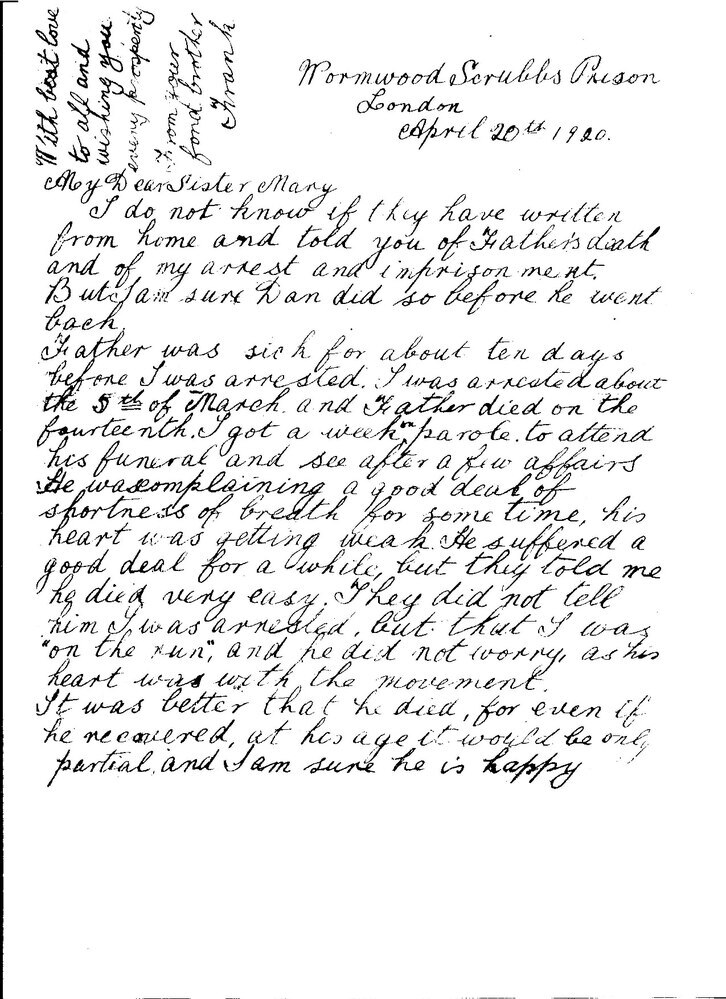 Wormwood Scrubbs Prison
London
April 20th 1920.
My Dear Sister Mary
I do not know if they have written
from home and told you of Father's death
and of my arrest and imprisonment.
But I am sure Dan did so before he went
back.
Father was sick for about ten days
before I was arrested. I was arrested about
the 5th of March and Father died on the
fourteenth. I got a week on parole to attend
his funeral and see after a few affairs
He was complaining a good deal of
shortness of breath for some time, his
heart was getting weak. He suffered a
good deal for a while, but they told me
he died very easy. They did not tell
him I was arrested, but that I was
"on the run", and he did not worry, as his
heart was with the movement.
It was better that he died, for even if
he recovered, at his age it would be only
partial, and I am sure he is happy
With best love
to all and
wishing you
every prosperity
From your
fond brother
Frank